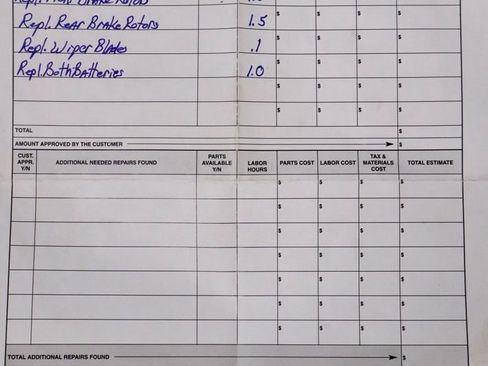 Repl. Front Brake Rotors
Repl. Rear Brake Rotors 1.5 $ $ $ $
Repl. Wiper Blades .1 $ $ $ $
Repl. Both Batteries 1.0 $ $ $ $
$ $ $ $
$ $ $ $
TOTAL $
AMOUNT APPROVED BY THE CUSTOMER $
CUST. APPR. Y/N ADDITIONAL NEEDED REPAIRS FOUND PARTS AVAILABLE Y/N LABOR HOURS PARTS COST LABOR COST TAX & MATERIALS COST TOTAL ESTIMATE
$ $ $ $
$ $ $ $
$ $ $ $
$ $ $ $
$ $ $ $
$ $ $ $
$ $ $ $
TOTAL ADDITIONAL REPAIRS FOUND $